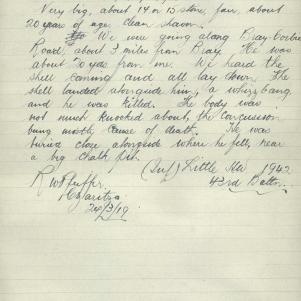 Very big, about 14 or 15 stone, fair, about
20 years of age, clean shaven.
We were going along Bray-Corbie
Road, about 3 miles from Bray. He was
about 20 yds from me. We heard the
shell coming and all lay down. The
shell landed alongside him, a whizz bang
and he was killed. The body was
not much knocked about, the concussion
being mostly cause of death. He was
buried close alongside where he fell, near
a big chalk pit.
(Inf) Little 1942
43rd Battn
24/3/19